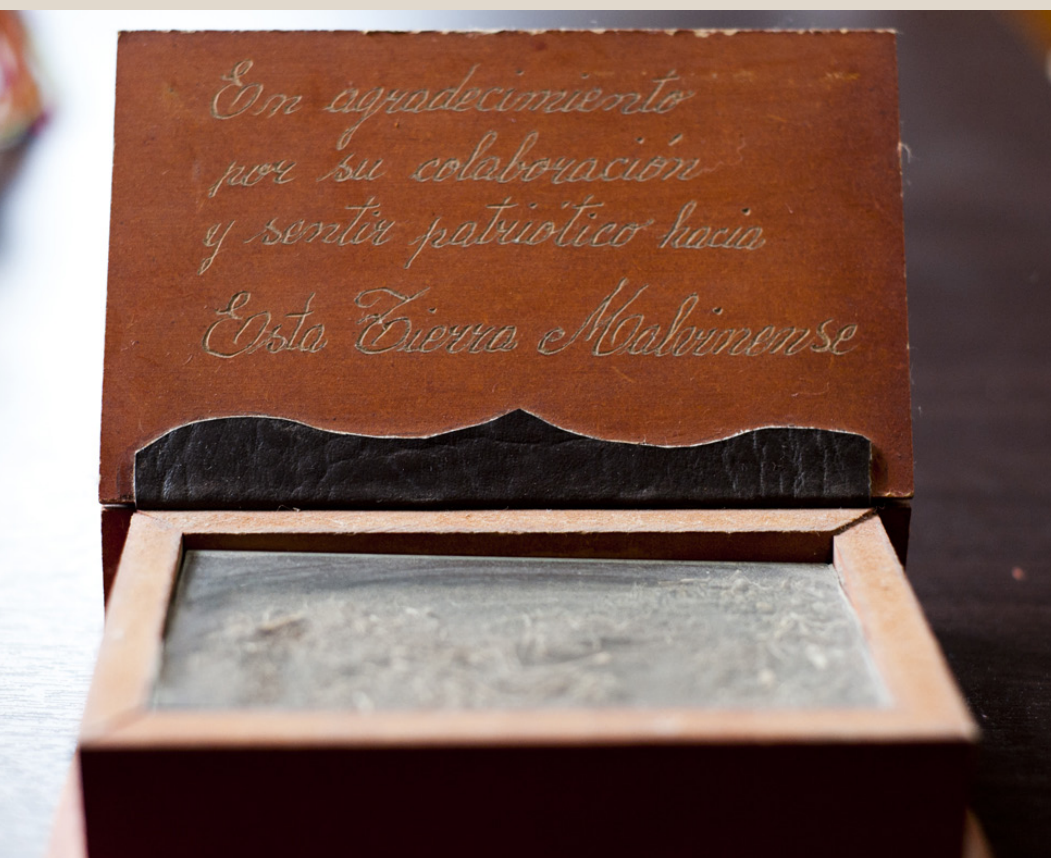 En agradecimiento
por su colaboración
y sentir patriótico hacia
Esta Tierra Malvinense